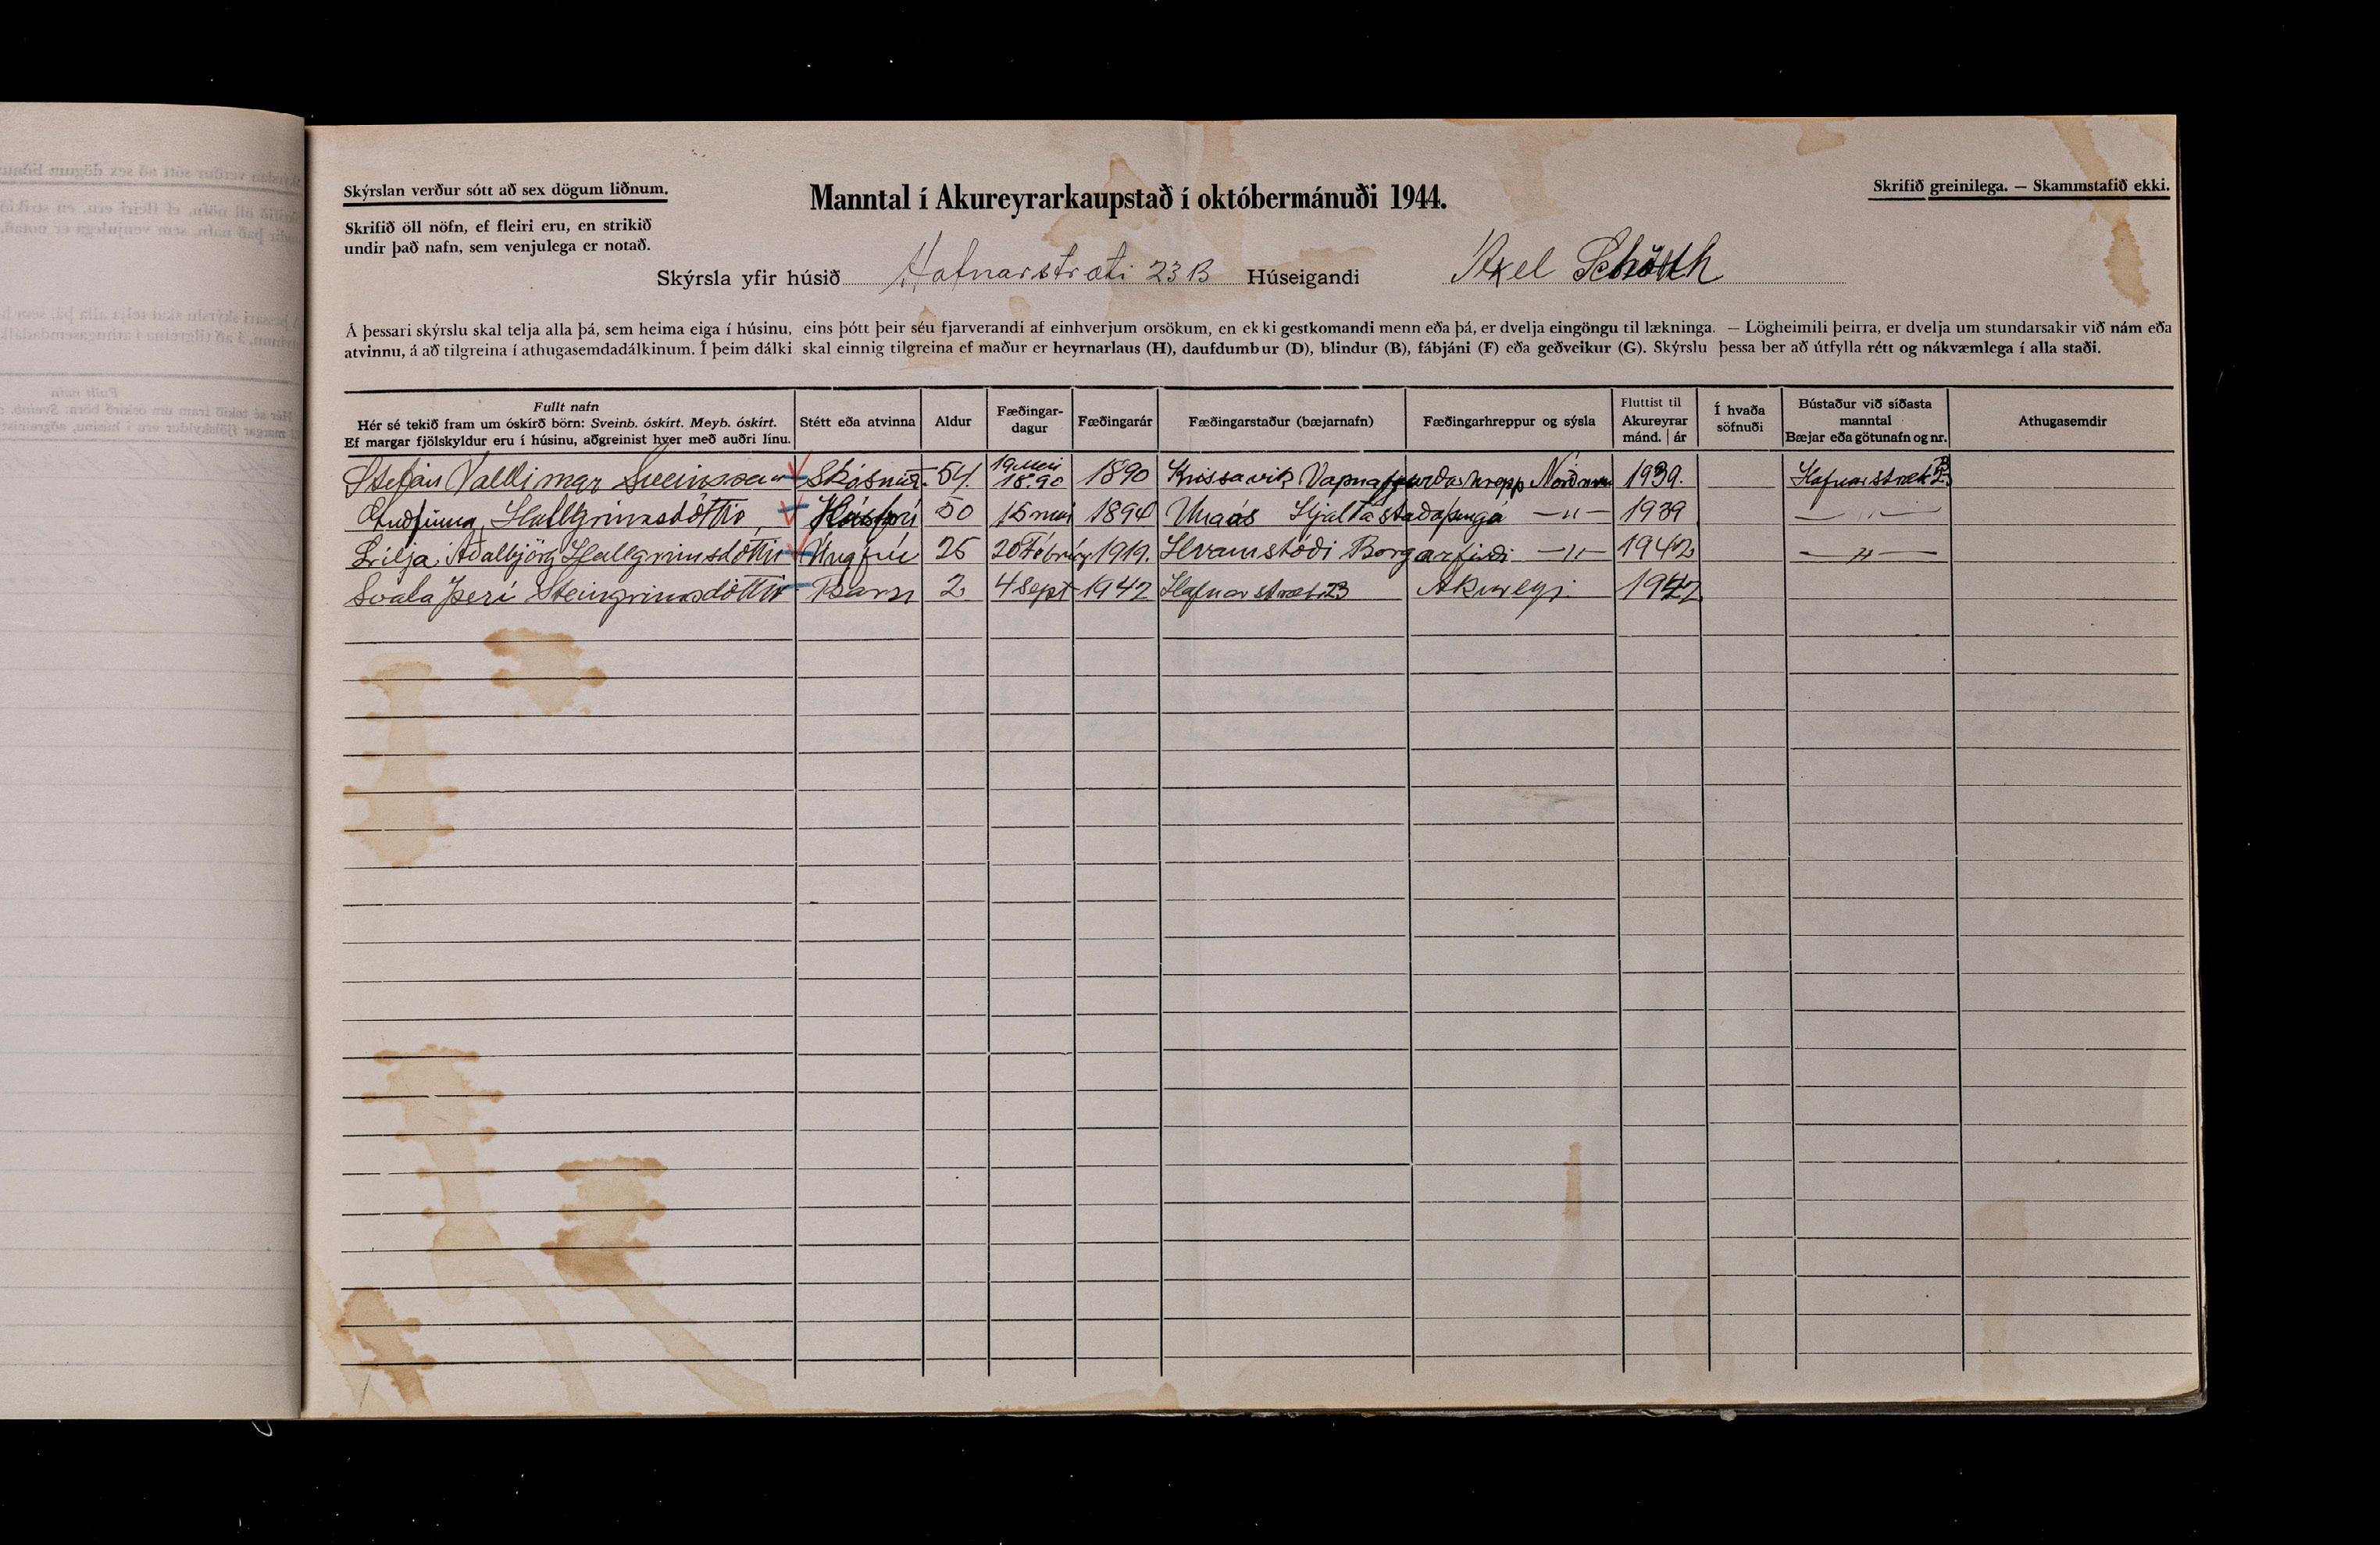 Skýrslan verður sótt að sex dögum liðnum.
Manntal í Akureyrarkaupstað í októbermánuði 1944.
Skrifið greinilega. — Skammstafið ekki.
Skrifið öll nöfn, ef fleiri eru, en strikið
undir það nafn, sem venjulega er notað.
Skýrsla yfir húsið Hafnarstræti 23B Húseigandi Axel Schöth
Á þessari skýrslu skal telja alla þá, sem heima eiga í húsinu, eins þótt þeir séu fjarverandi af einhverjum orsökum, en ekki gestkomandi menn eða þá, er dvelja eingöngu til lækninga. — Lögheimili þeirra, er dvelja um stundarsakir við nám eða
atvinnu, á að tilgreina í athugasemdadálkinum. Í þeim dálki skal einnig tilgreina ef maður er heyrnarlaus (H), daufdumbur (D), blindur (B), fábjáni (F) eða geðveikur (G). Skýrslu þessa ber að útfylla rétt og nákvæmlega í alla staði.
Fullt nafn
Hér sé tekið fram um óskírð börn: Sveinb. óskírt. Meyb. óskírt.
Ef margar fjölskyldur eru í húsinu, aðgreinist hver með auðri línu.
Stétt eða atvinna
Aldur
Fæðingar-
dagur
Fæðingarár
Fæðingarstaður (bæjarnafn)
Fæðingarhreppur og sýsla
Fluttist til
Akureyrar
mánd. | ár
Í hvaða
söfnuði
Bústaður við síðasta
manntal
Bæjar eða götunafn og nr.
Athugasemdir
Stefán Valdimar Sveinsson Skósmið. 54. 19 Mai 18.90 1890 Krissavik Vapnafjarðarhrepp 1939. Hafnarstræti
Guðfinna Hallgrimsdóttir, Húsfrú 50 15 mai 1894 Unaós Hjaltastaðaþingá —"— 1939 —"—
Lilja Aðalbjörg Hallgrimsdóttir Ungfrú 25 20 Februar 1919. Hvamstóði Borgarfirði —"— 1942 —"—
Svala Þeri Steingrimsdóttir Barn 2 4 Sept 1942 Hafnarstræti 23 Akureyri 1942